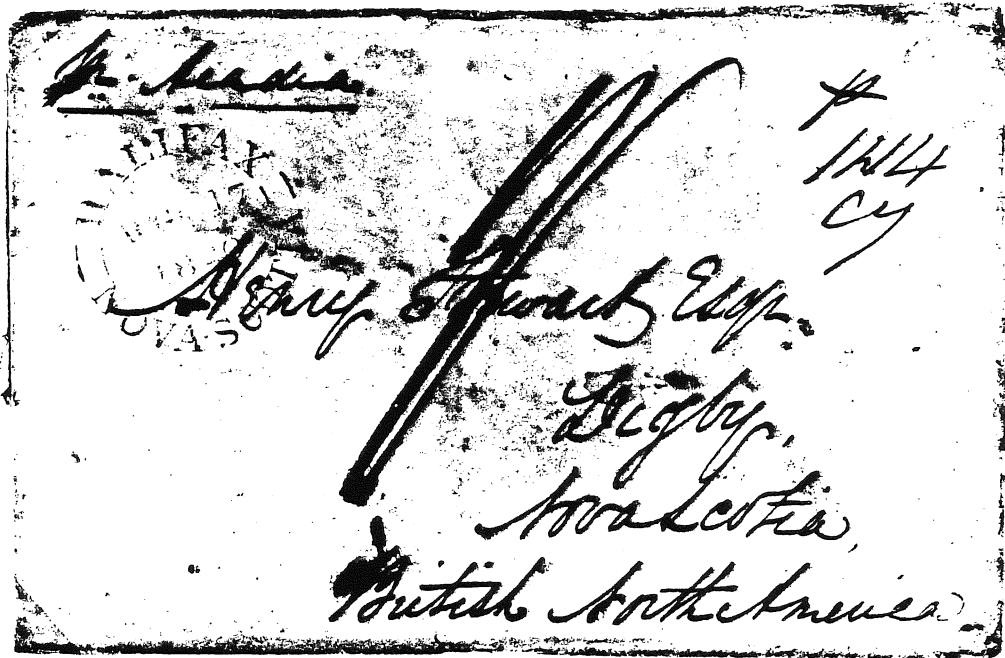 Pr. Acadia.
HALIFAX
NOVA SCOTIA
Henry Stewart Esqr.
Digby,
Nova Scotia,
British North America